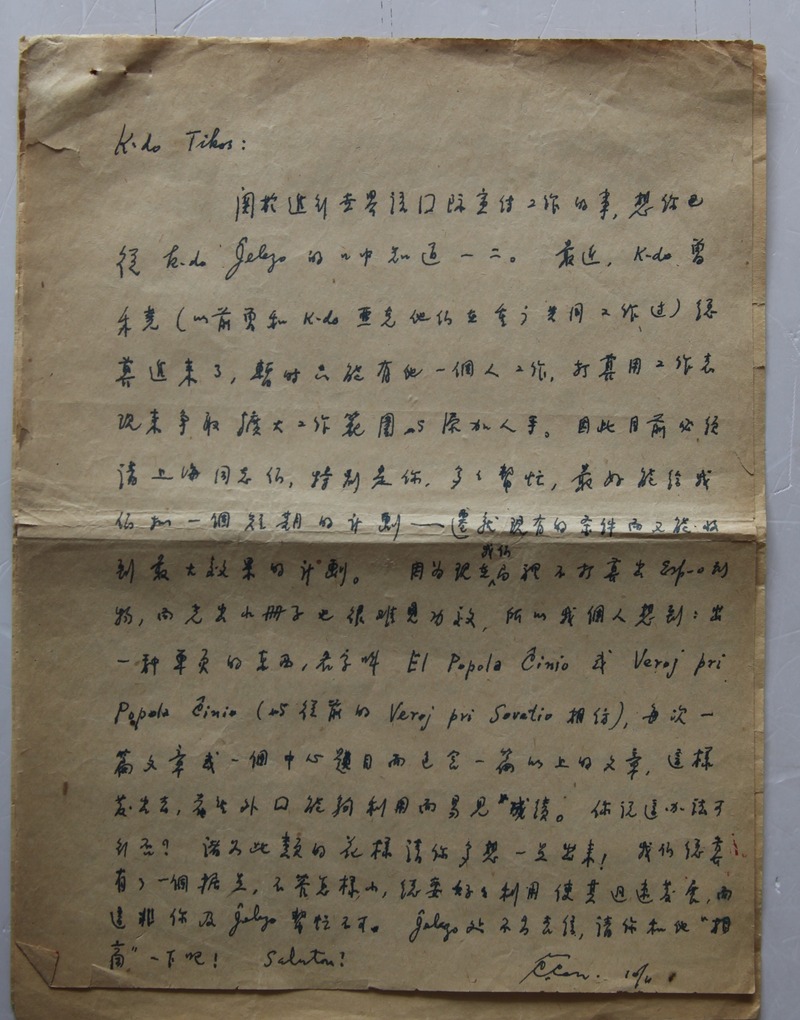 K-do Tikos:
關於進行世界語口际宣传工作的事, 想你已
從 K-do Ĵelezo 的 中知道一二。 最近, K-do 曾
(以前曾和 K-do 他們在 共同工作过) 總
算進來了, 暫时只能有他一個人工作, 打算用工作表
现来争取擴大工作範圍与添加人手。 因此目前必須
請上海同志们, 特别是你, 多々幫忙, 最好能給我
们拟一個短期的计劃——選就现有的条件而又能收
到最大效果的计劃。 因为现在我们局裡不打算出 Esp-o 刊
物, 而光出小册子也很难见功效, 所以我個人想到: 出
一种單页的东西, 名字叫 El Popola Ĉinio 或 Veroj pri
Popola Ĉinio (与從前的 Veroj pri Sovetio 相仿), 每次一
篇文章或一個中心題目而包含一篇以上的文章, 這樣
发出去, 國外 能夠利用而易見"成绩。 你说這办法可
行否? 諸如此類的花樣請你多想一些出来! 我们總算
有了一個据点, 不管怎樣小, 總要好々利用使其迅速发展, 而
這非你及 Ĵelezo 幫忙不可。 Ĵelezo 处不另去信, 請你和他"相
商"一下吧! Saluton!
10/11